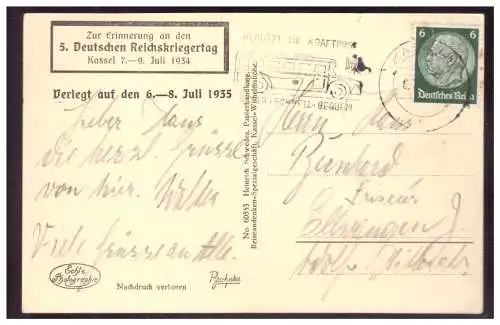 Zur Erinnerung an den
5. Deutschen Reichskriegertag
Kassel 7.—9. Juli 1934
Verlegt auf den 6.—8. Juli 1935
BENUTZT DIE KRAFTPOST
SICHER-SCHNELL-BEQUEM
6 6
Deutsches Reich
Lieber Hans
die herzl. Grüsse
von hier. Walter
Viele Grüsse an Alle.
Echte
Photographie
Nachdruck verboten
No. 60553 Heinrich Schwedes, Papierhandlung,
Reiseandenken-Spezialgeschäft, Kassel-Wilhelmshöhe.
Herrn
Bernhard
Friseur
Ellwangen J.
Adolf